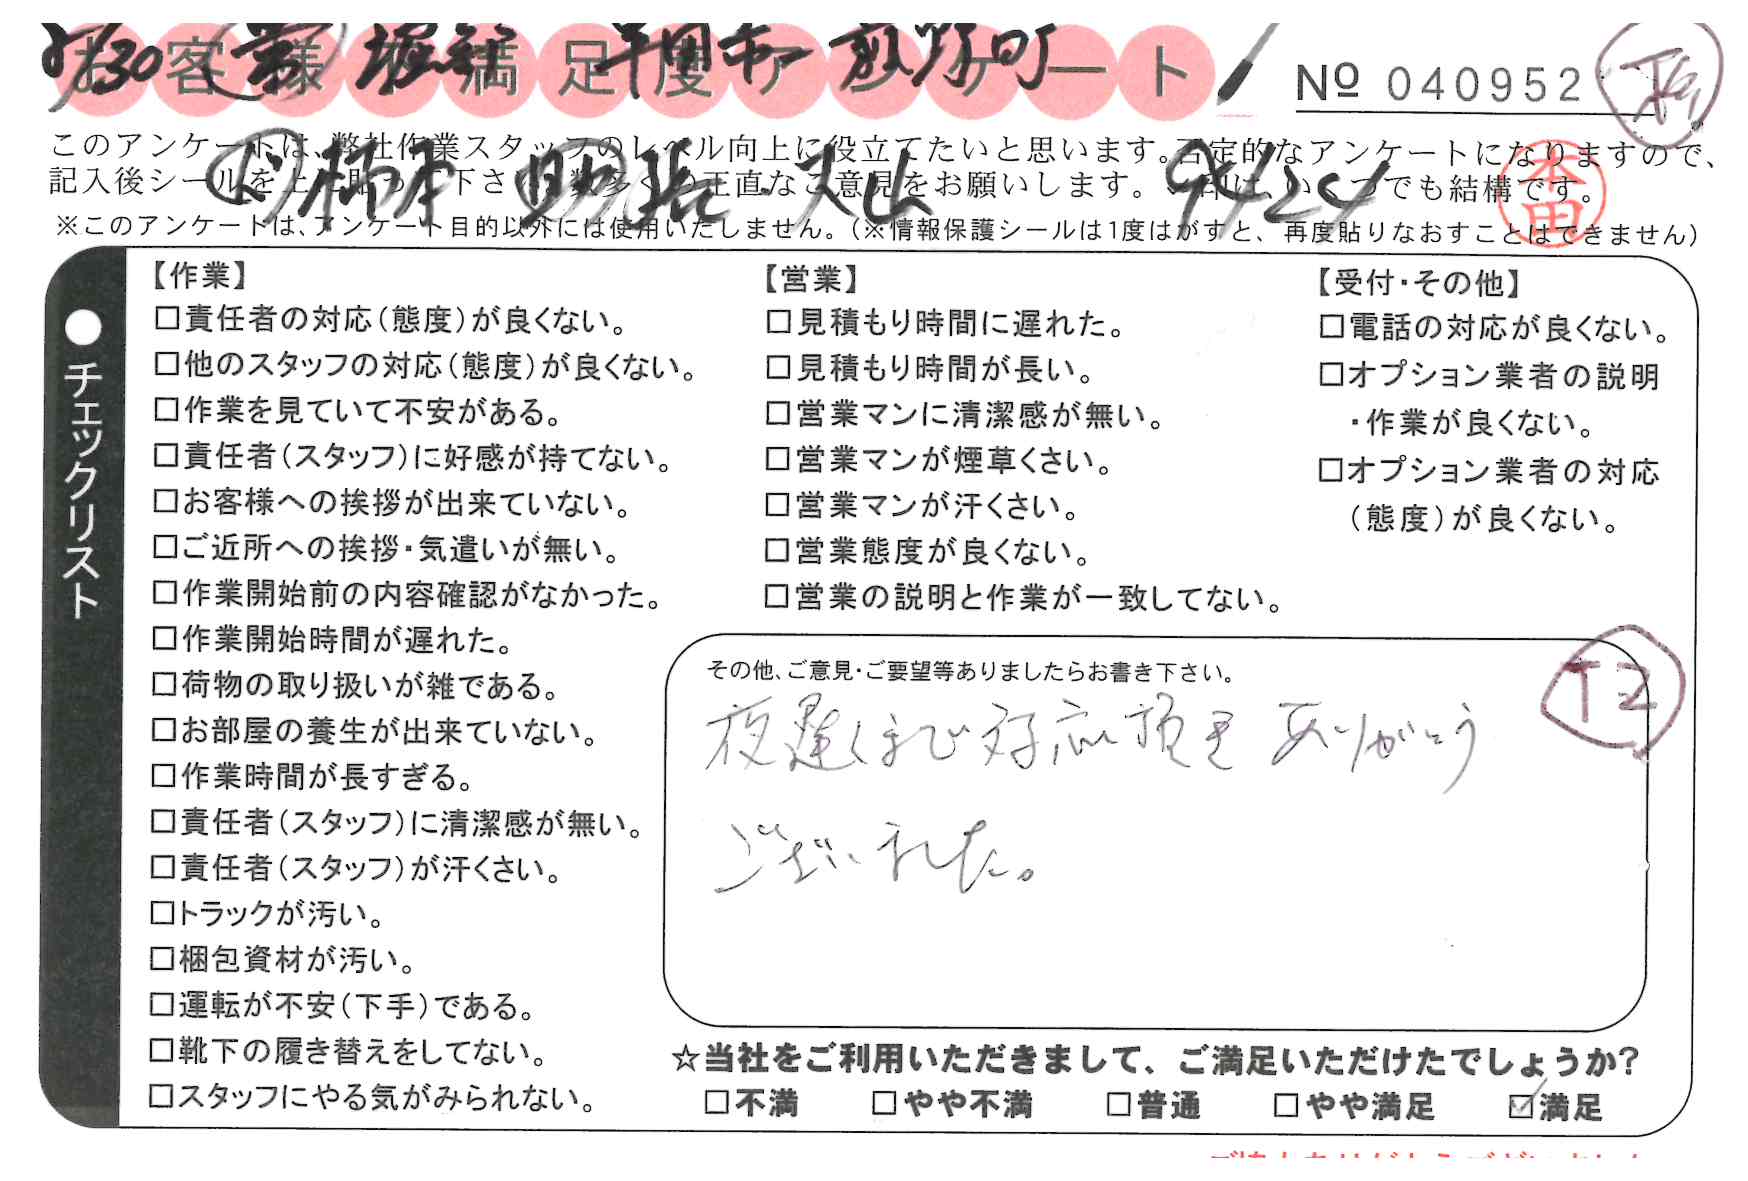 お客様満足度アンケート
№ 040952
このアンケートは、弊社作業スタッフのレベル向上に役立てたいと思います。否定的なアンケートになりますので、
記入後シールを上に貼って下さい。数多くの正直なご意見をお願いします。✓印は、いくつでも結構です。
本田
※このアンケートは、アンケート目的以外には使用いたしません。(※情報保護シールは1度はがすと、再度貼りなおすことはできません)
●チェックリスト
【作業】
□責任者の対応(態度)が良くない。
□他のスタッフの対応(態度)が良くない。
□作業を見ていて不安がある。
□責任者(スタッフ)に好感が持てない。
□お客様への挨拶が出来ていない。
□ご近所への挨拶・気遣いが無い。
□作業開始前の内容確認がなかった。
□作業開始時間が遅れた。
□荷物の取り扱いが雑である。
□お部屋の養生が出来ていない。
□作業時間が長すぎる。
□責任者(スタッフ)に清潔感が無い。
□責任者(スタッフ)が汗くさい。
□トラックが汚い。
□梱包資材が汚い。
□運転が不安(下手)である。
□靴下の履き替えをしてない。
□スタッフにやる気がみられない。
【営業】
□見積もり時間に遅れた。
□見積もり時間が長い。
□営業マンに清潔感が無い。
□営業マンが煙草くさい。
□営業マンが汗くさい。
□営業態度が良くない。
□営業の説明と作業が一致してない。
【受付・その他】
□電話の対応が良くない。
□オプション業者の説明
・作業が良くない。
□オプション業者の対応
(態度)が良くない。
その他、ご意見・ご要望等ありましたらお書き下さい。
TZ
夜遅くまで対応頂きありがとう
ございました。
☆当社をご利用いただきまして、ご満足いただけたでしょうか?
□不満 □やや不満 □普通 □やや満足 ☑満足